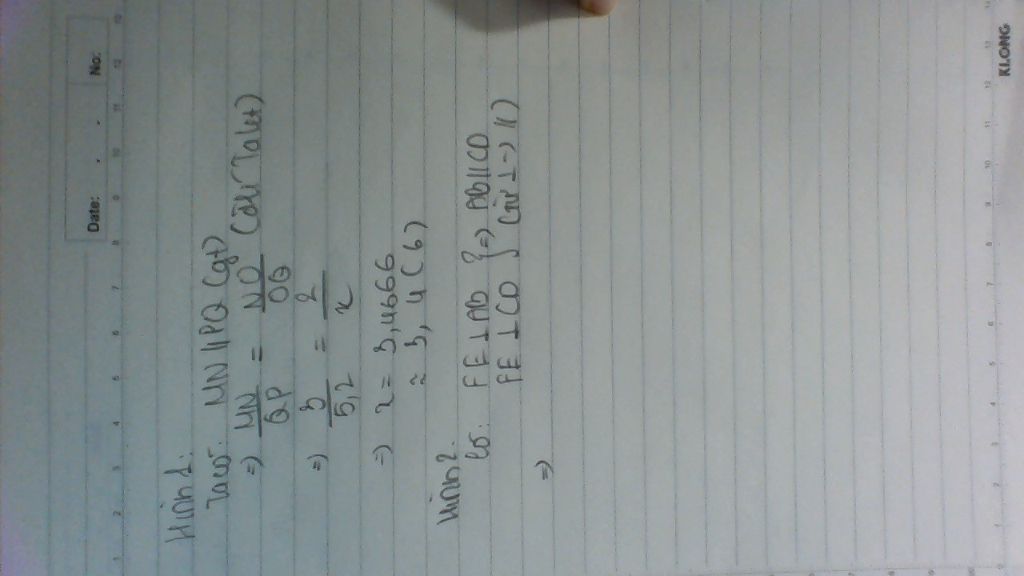 No:
Date: . .
Hình 1:
Ta có: MN // PQ (gt)
=) MN/QP = NO/OQ (đlí Talet)
=) 3/5,2 = 2/x
=) 2 = 3,4666
≈ 3,4(6)
Hình 2.
Có: FE ⊥ AB } =) AB // CD
FE ⊥ CD (từ ⊥ -> //)
=)
KLONG